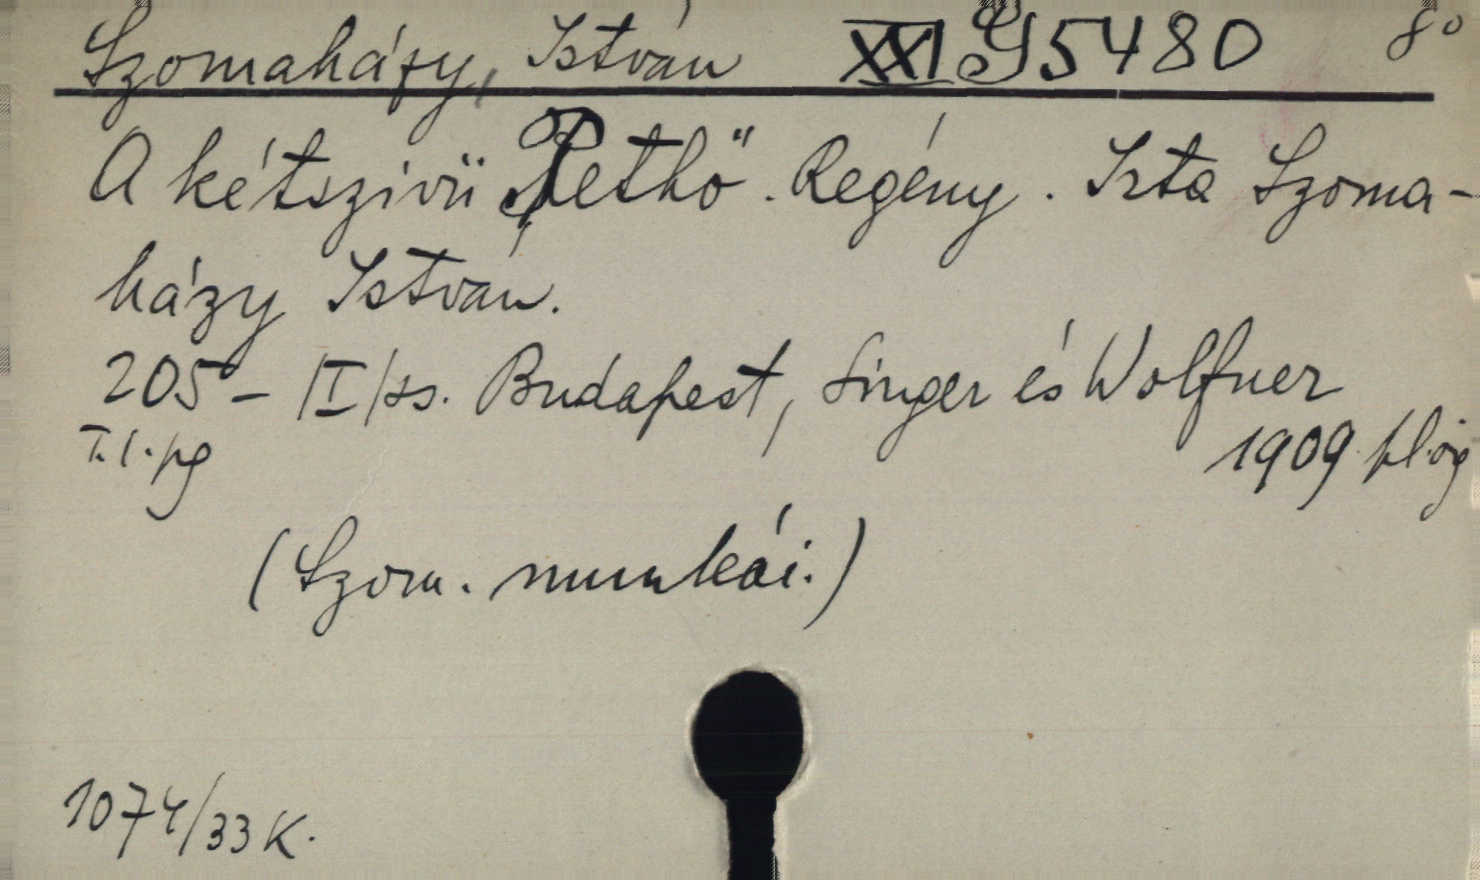 Szomaházy, István XXI Y 5480 8°
A kétszivü Pethö. Regény. Irta Szoma-
házy István.
205 - |I| ss. Budapest, Singer és Wolfner
T. l. pg 1909
(Szom. munkái.)
1074/33 K.